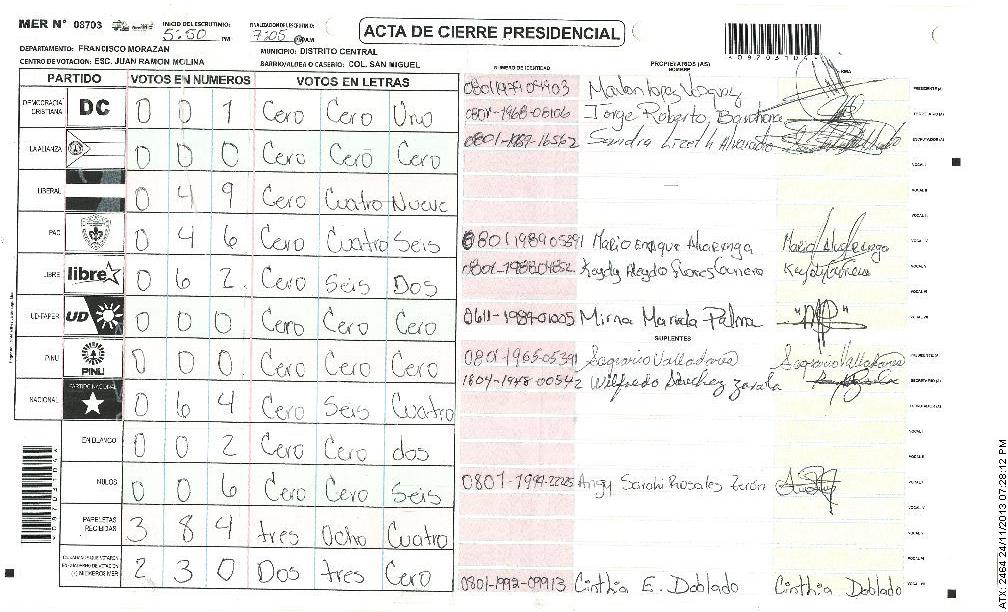 MER N° 08703
INICIO DEL ESCRUTINIO:
5:50 PM
FINALIZACION DEL ESCRUTINIO:
7:05 PM
ACTA DE CIERRE PRESIDENCIAL
DEPARTAMENTO: FRANCISCO MORAZAN
MUNICIPIO: DISTRITO CENTRAL
CENTRO DE VOTACION: ESC. JUAN RAMON MOLINA
BARRIO/ALDEA O CASERIO: COL. SAN MIGUEL
PARTIDO VOTOS EN NUMEROS VOTOS EN LETRAS
DEMOCRACIA CRISTIANA DC 0 0 1 Cero Cero Uno
LA ALIANZA 0 0 0 Cero Cero Cero
LIBERAL 0 4 9 Cero Cuatro Nueve
PAC 0 4 6 Cero Cuatro Seis
LIBRE libre 0 6 2 Cero Seis Dos
UD-FAPER UD 0 0 0 Cero Cero Cero
PINU PINU 0 0 0 Cero Cero Cero
NACIONAL PARTIDO NACIONAL 0 6 4 Cero Seis Cuatro
EN BLANCO 0 0 2 Cero Cero dos
NULOS 0 0 6 Cero Cero Seis
PAPELETAS RECIBIDAS 3 8 4 tres Ocho Cuatro
CIUDADANOS QUE VOTARON EN CUADERNO DE VOTACION (+) MIEMBROS MER 2 3 0 Dos tres Cero
NUMERO DE IDENTIDAD PROPIETARIOS (AS) NOMBRE FIRMA
Marlon lopez Vasquez PRESIDENTE (A)
0801-1968-06106 Jorge Roberto Barahona SECRETARIO (A)
0801-1989-16562 Sandra Lizeth Alvarado ESCRUTADOR (A)
VOCAL I
VOCAL II
VOCAL III
Mario Enrique VOCAL IV
VOCAL V
VOCAL VI
0611-1989-01005 Mirna Marida Palma VOCAL VII
SUPLENTES
0801-1965-05391 Sagrario Valladares Sagrario Valladares PRESIDENTE (A)
1804-1948-00542 Wilfredo Sanchez Zavala SECRETARIO (A)
ESCRUTADOR (A)
VOCAL I
VOCAL II
Angy Sarahi Rosales VOCAL III
VOCAL IV
VOCAL V
VOCAL VI
0801-1992-09913 Cinthia E. Doblado Cinthia Doblado VOCAL VII
ATX-2464-24/11/2013 07:28:12 PM